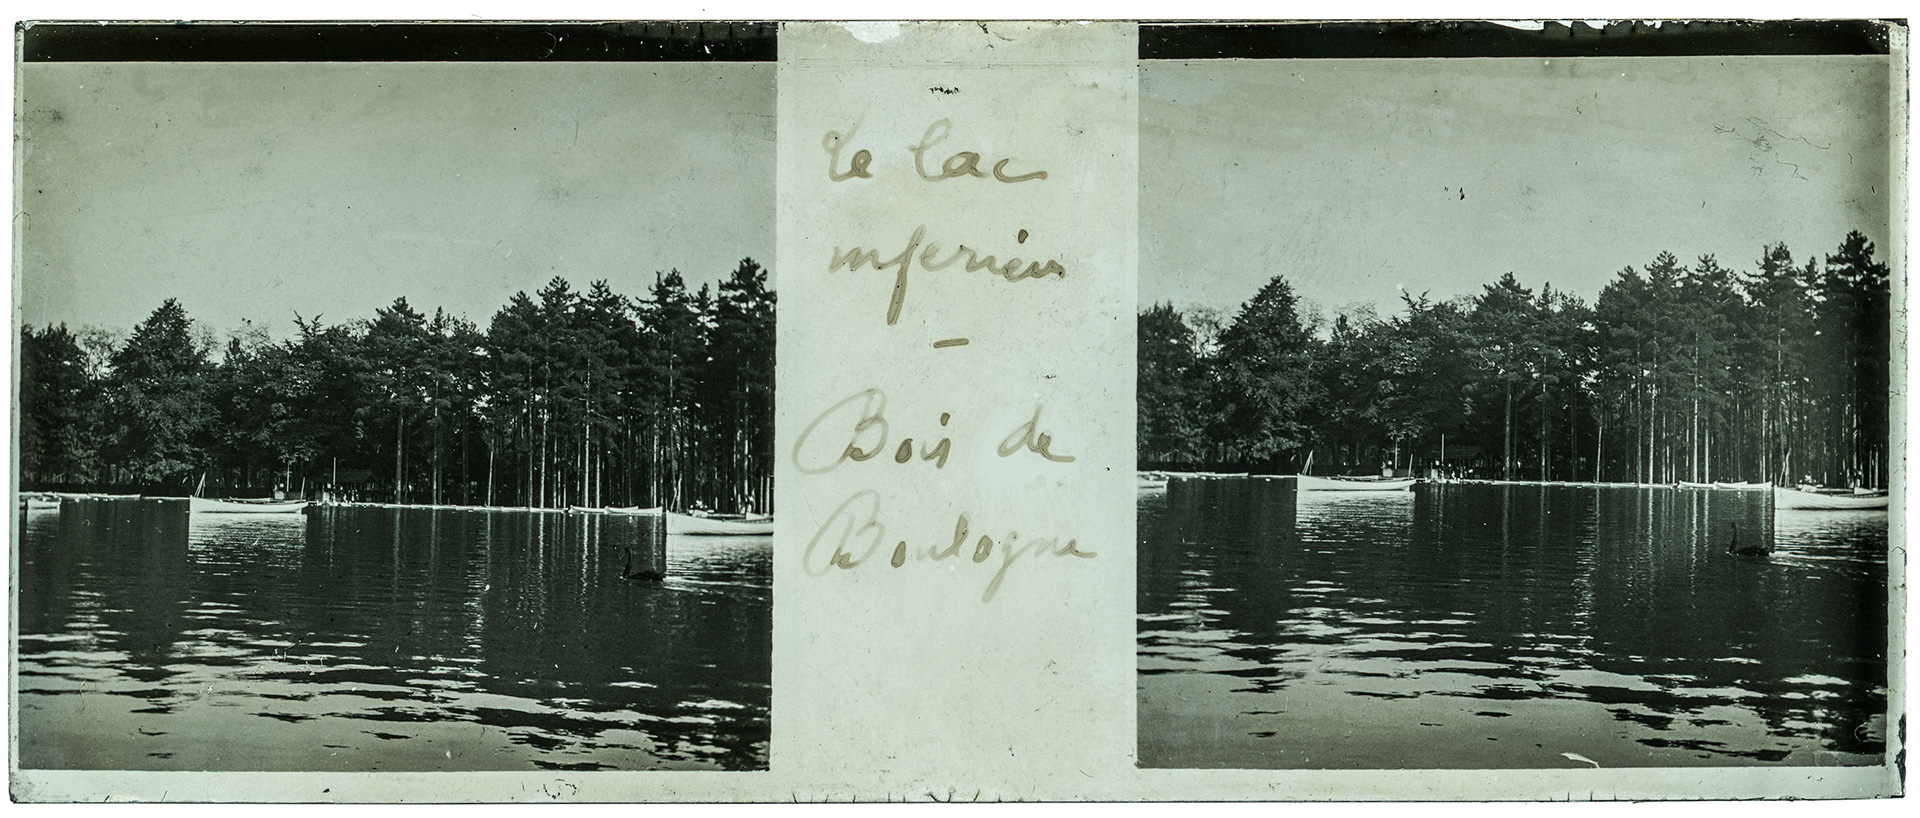 Le lac
inferieur
—
Bois de
Boulogne